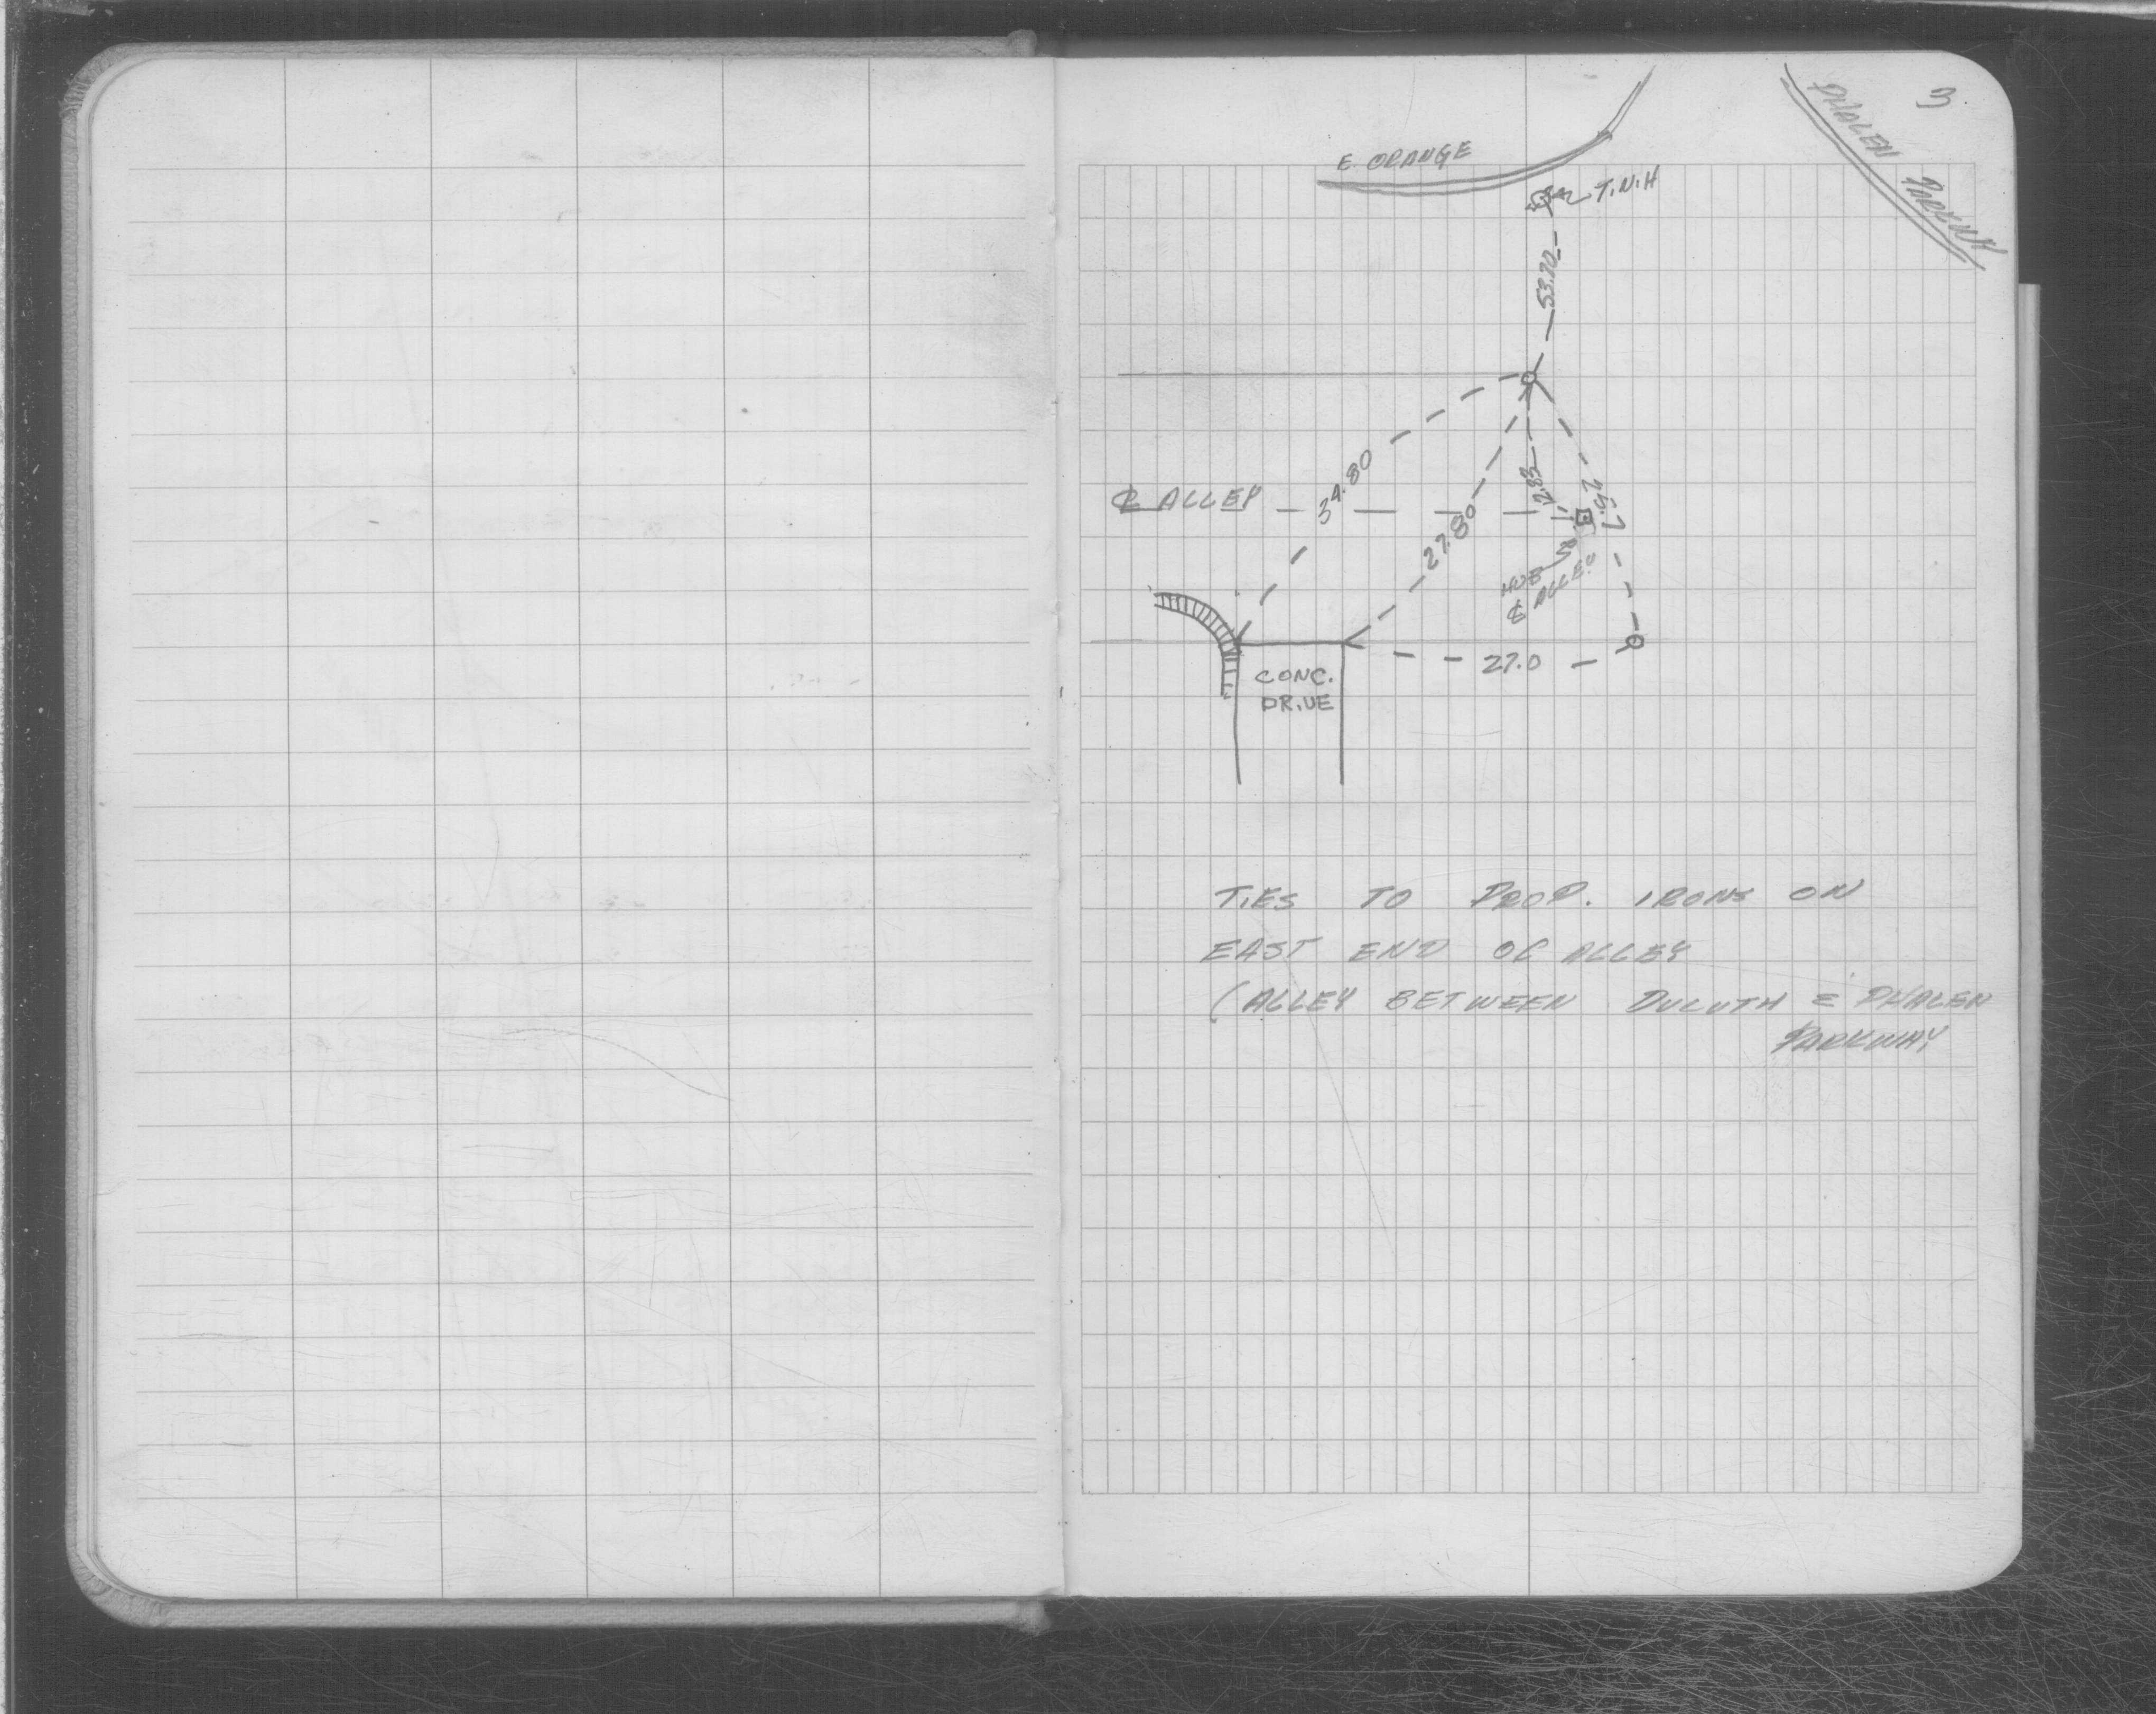 3
PHALEN
PARKWAY
E. ORANGE
T.N.H
53.20
34.80
27.80
12.83
25.27
℄ ALLEY
HUB
℄ ALLEY
27.0
CONC.
DRIVE
TIES TO PROP. IRONS ON
EAST END OF ALLEY
(ALLEY BETWEEN DULUTH & PHALEN
PARKWAY